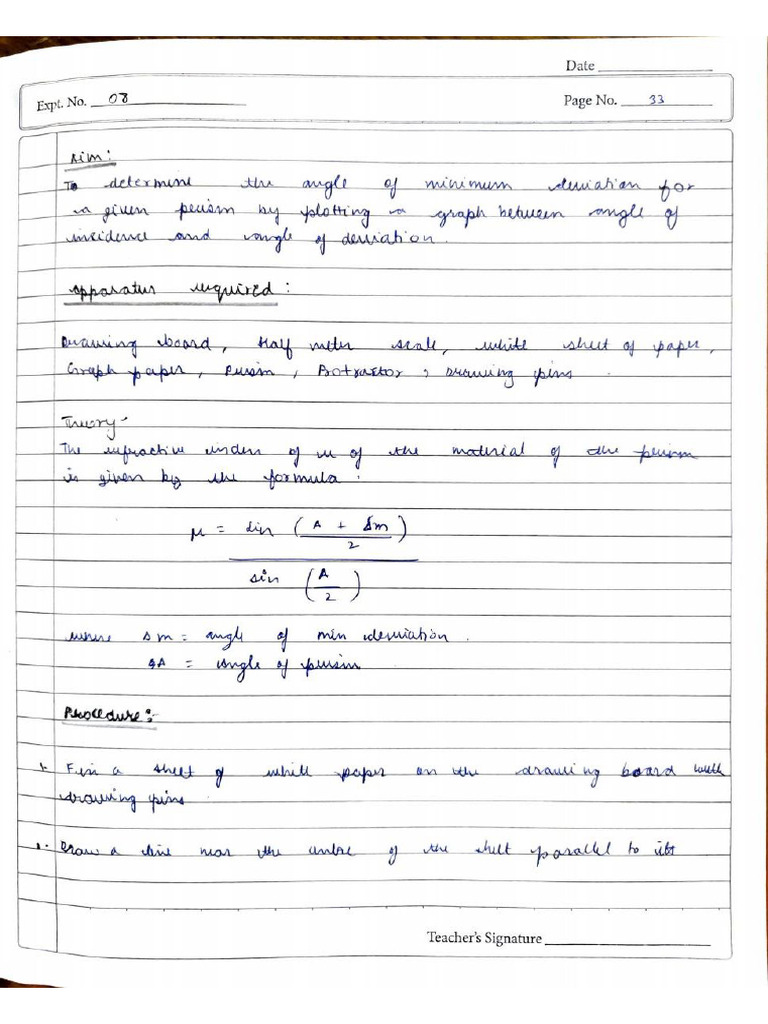 Date
Expt. No. 08
Page No. 33
Aim:
To determine the angle of minimum deviation for
a given prism by plotting a graph between angle of
incidence and angle of deviation.
Apparatus required:
Drawing board, Half meter scale, white sheet of paper,
Graph paper, Prism, Protractor, Drawing pins.
Theory-
The refractive index of μ of the material of the prism
is given by the formula:
μ = sin (A + δm / 2)
sin (A / 2)
where δm = angle of min deviation.
A = angle of prism
Procedure:-
1. Fix a sheet of white paper on the drawing board with
drawing pins
2. Draw a line near the centre of the sheet parallel to its
Teacher's Signature